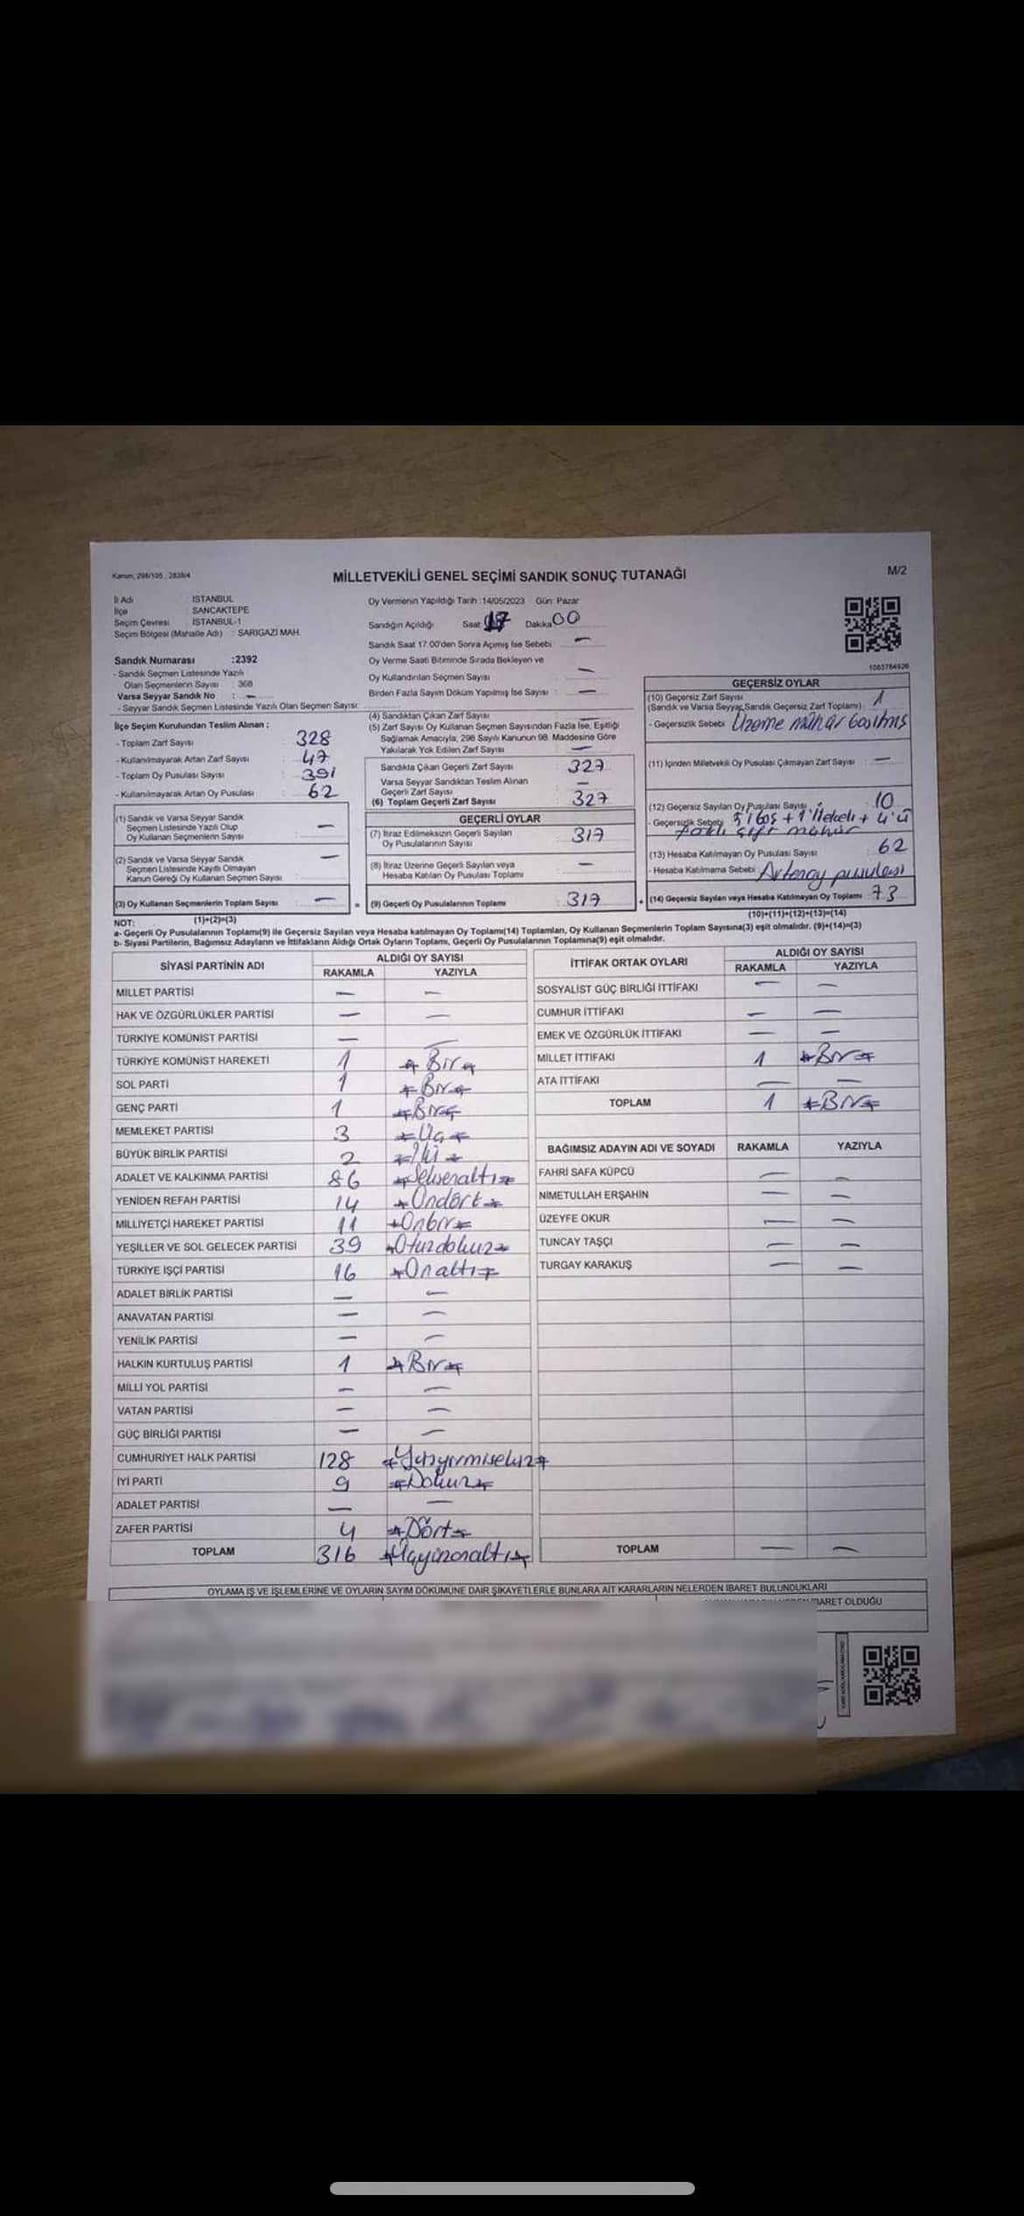 Kanun; 298/105 , 2839/4
MİLLETVEKİLİ GENEL SEÇİMİ SANDIK SONUÇ TUTANAĞI
M/2
İl Adı : İSTANBUL
İlçe : SANCAKTEPE
Seçim Çevresi : İSTANBUL-1
Seçim Bölgesi (Mahalle Adı) : SARIGAZİ MAH.
Sandık Numarası :2392
- Sandık Seçmen Listesinde Yazılı
Olan Seçmenlerin Sayısı : 368
Varsa Seyyar Sandık No : —
- Seyyar Sandık Seçmen Listesinde Yazılı Olan Seçmen Sayısı:
Oy Vermenin Yapıldığı Tarih :14/05/2023 Gün: Pazar
Sandığın Açıldığı Saat 17 Dakika 00
Sandık Saat 17.00'den Sonra Açılmış İse Sebebi : —
Oy Verme Saati Bitiminde Sırada Bekleyen ve
Oy Kullandırılan Seçmen Sayısı : —
Birden Fazla Sayım Döküm Yapılmış İse Sayısı : —
1083784926
İlçe Seçim Kurulundan Teslim Alınan :
- Toplam Zarf Sayısı : 328
- Kullanılmayarak Artan Zarf Sayısı : 47
- Toplam Oy Pusulası Sayısı : 391
- Kullanılmayarak Artan Oy Pusulası : 62
(1) Sandık ve Varsa Seyyar Sandık
Seçmen Listesinde Yazılı Olup
Oy Kullanan Seçmenlerin Sayısı : —
(2) Sandık ve Varsa Seyyar Sandık
Seçmen Listesinde Kayıtlı Olmayan
Kanun Gereği Oy Kullanan Seçmen Sayısı : —
(3) Oy Kullanan Seçmenlerin Toplam Sayısı : —
(1)+(2)=(3)
(4) Sandıktan Çıkan Zarf Sayısı
(5) Zarf Sayısı Oy Kullanan Seçmen Sayısından Fazla İse, Eşitliği
Sağlamak Amacıyla, 298 Sayılı Kanunun 98. Maddesine Göre
Yakılarak Yok Edilen Zarf Sayısı : —
Sandıkta Çıkan Geçerli Zarf Sayısı : 327
Varsa Seyyar Sandıktan Teslim Alınan
Geçerli Zarf Sayısı : —
(6) Toplam Geçerli Zarf Sayısı : 327
GEÇERLİ OYLAR
(7) İtiraz Edilmeksizin Geçerli Sayılan
Oy Pusulalarının Sayısı : 317
(8) İtiraz Üzerine Geçerli Sayılan veya
Hesaba Katılan Oy Pusulası Toplamı : —
(9) Geçerli Oy Pusulalarının Toplamı : 317
GEÇERSİZ OYLAR
(10) Geçersiz Zarf Sayısı 1
(Sandık ve Varsa Seyyar Sandık Geçersiz Zarf Toplamı)
- Geçersizlik Sebebi Üzerine mühür basılmış
(11) İçinden Milletvekili Oy Pusulası Çıkmayan Zarf Sayısı : —
(12) Geçersiz Sayılan Oy Pusulası Sayısı : 10
- Geçersizlik Sebebi 5'i boş + 1'i lekeli + 4'ü
farklı çift mühür
(13) Hesaba Katılmayan Oy Pusulası Sayısı : 62
- Hesaba Katılmama Sebebi Artan oy pusulası
(14) Geçersiz Sayılan veya Hesaba Katılmayan Oy Toplamı : 73
(10)+(11)+(12)+(13)=(14)
NOT:
a- Geçerli Oy Pusulalarının Toplamı(9) ile Geçersiz Sayılan veya Hesaba katılmayan Oy Toplamı(14) Toplamları, Oy Kullanan Seçmenlerin Toplam Sayısına(3) eşit olmalıdır. (9)+(14)=(3)
b- Siyasi Partilerin, Bağımsız Adayların ve İttifakların Aldığı Ortak Oyların Toplamı, Geçerli Oy Pusulalarının Toplamına(9) eşit olmalıdır.
SİYASİ PARTİNİN ADI ALDIĞI OY SAYISI
RAKAMLA YAZIYLA
MİLLET PARTİSİ — —
HAK VE ÖZGÜRLÜKLER PARTİSİ — —
TÜRKİYE KOMÜNİST PARTİSİ — —
TÜRKİYE KOMÜNİST HAREKETİ 1 *Bir*
SOL PARTİ 1 *Bir*
GENÇ PARTİ 1 *Bir*
MEMLEKET PARTİSİ 3 *Üç*
BÜYÜK BİRLİK PARTİSİ 2 *İki*
ADALET VE KALKINMA PARTİSİ 86 *Seksenaltı*
YENİDEN REFAH PARTİSİ 14 *Ondört*
MİLLİYETÇİ HAREKET PARTİSİ 11 *Onbir*
YEŞİLLER VE SOL GELECEK PARTİSİ 39 *Otuzdokuz*
TÜRKİYE İŞÇİ PARTİSİ 16 *Onaltı*
ADALET BİRLİK PARTİSİ — —
ANAVATAN PARTİSİ — —
YENİLİK PARTİSİ — —
HALKIN KURTULUŞ PARTİSİ 1 *Bir*
MİLLİ YOL PARTİSİ — —
VATAN PARTİSİ — —
GÜÇ BİRLİĞİ PARTİSİ — —
CUMHURİYET HALK PARTİSİ 128 *Yüzyirmisekiz*
İYİ PARTİ 9 *Dokuz*
ADALET PARTİSİ — —
ZAFER PARTİSİ 4 *Dört*
TOPLAM 316 *Üçyüzonaltı*
İTTİFAK ORTAK OYLARI ALDIĞI OY SAYISI
RAKAMLA YAZIYLA
SOSYALİST GÜÇ BİRLİĞİ İTTİFAKI — —
CUMHUR İTTİFAKI — —
EMEK VE ÖZGÜRLÜK İTTİFAKI — —
MİLLET İTTİFAKI 1 *Bir*
ATA İTTİFAKI — —
TOPLAM 1 *Bir*
BAĞIMSIZ ADAYIN ADI VE SOYADI RAKAMLA YAZIYLA
FAHRİ SAFA KÜPCÜ — —
NİMETULLAH ERŞAHİN — —
ÜZEYFE OKUR — —
TUNCAY TAŞÇI — —
TURGAY KARAKUŞ — —
TOPLAM — —
OYLAMA İŞ VE İŞLEMLERİNE VE OYLARIN SAYIM DÖKÜMÜNE DAİR ŞİKAYETLERLE BUNLARA AİT KARARLARIN NELERDEN İBARET BULUNDUKLARI
İBARET OLDUĞU